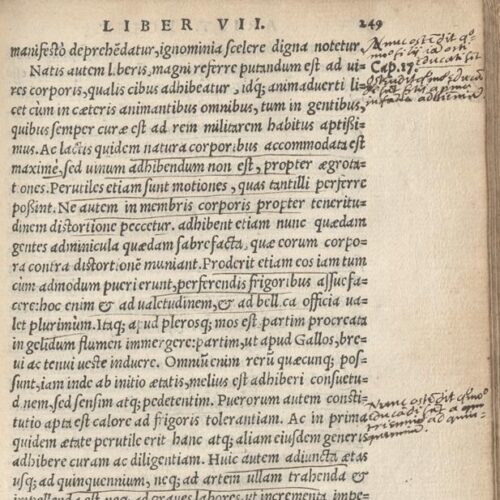 LIBER VII. 249
manifestò deprehẽdatur, ignominia scelere digna notetur.
Natis autem liberis, magni referre putandum est ad ui-
Cap. 17.
res corporis, qualis cibus adhibeatur, idq; animaduerti li-
cet cùm in cæteris animantibus omnibus, tum in gentibus,
quibus semper curæ est ad rem militarem habitus aptißi-
mus. Ac lactis quidem natura corporibus accommodata est
maximè, sed uinum adhibendum non est, propter ægrota-
tiones. Perutiles etiam sunt motiones, quas tantilli perferre
poßint. Ne autem in membris corporis propter teneritu-
dinem distortione peccetur. adhibent etiam nunc quædam
gentes adminicula quædam fabrefacta, quæ eorum corpo-
ra contra distortionẽ muniant. Proderit etiam eos iam tum
cùm admodum pueri erunt, perferendis frigoribus assuefa-
cere: hoc enim & ad ualetudinem, & ad bellica officia ua-
let plurimum. Itaq; apud plerosq; mos est partim procreata
in gelidum flumen immergere: partim, ut apud Gallos, bre-
ui ac tenui ueste induere. Omniũ enim rerũ quæcunq; pos-
sunt, iam inde ab initio ætatis, melius est adhiberi consuetu-
dinem, sed sensim atq; pedetentim. Puerorum autem consti-
tutio apta est calore ad frigoris tolerantiam. Ac in prima
quidem ætate perutile erit hanc atq; aliam eiusdem generis
adhibere curam ac diligentiam. Huic autem adiuncta ætas
usq; ad quinquennium, neq; ad artem ullam trahenda &
impellenda est, neq; ad graues labores, ut incrementa impe-